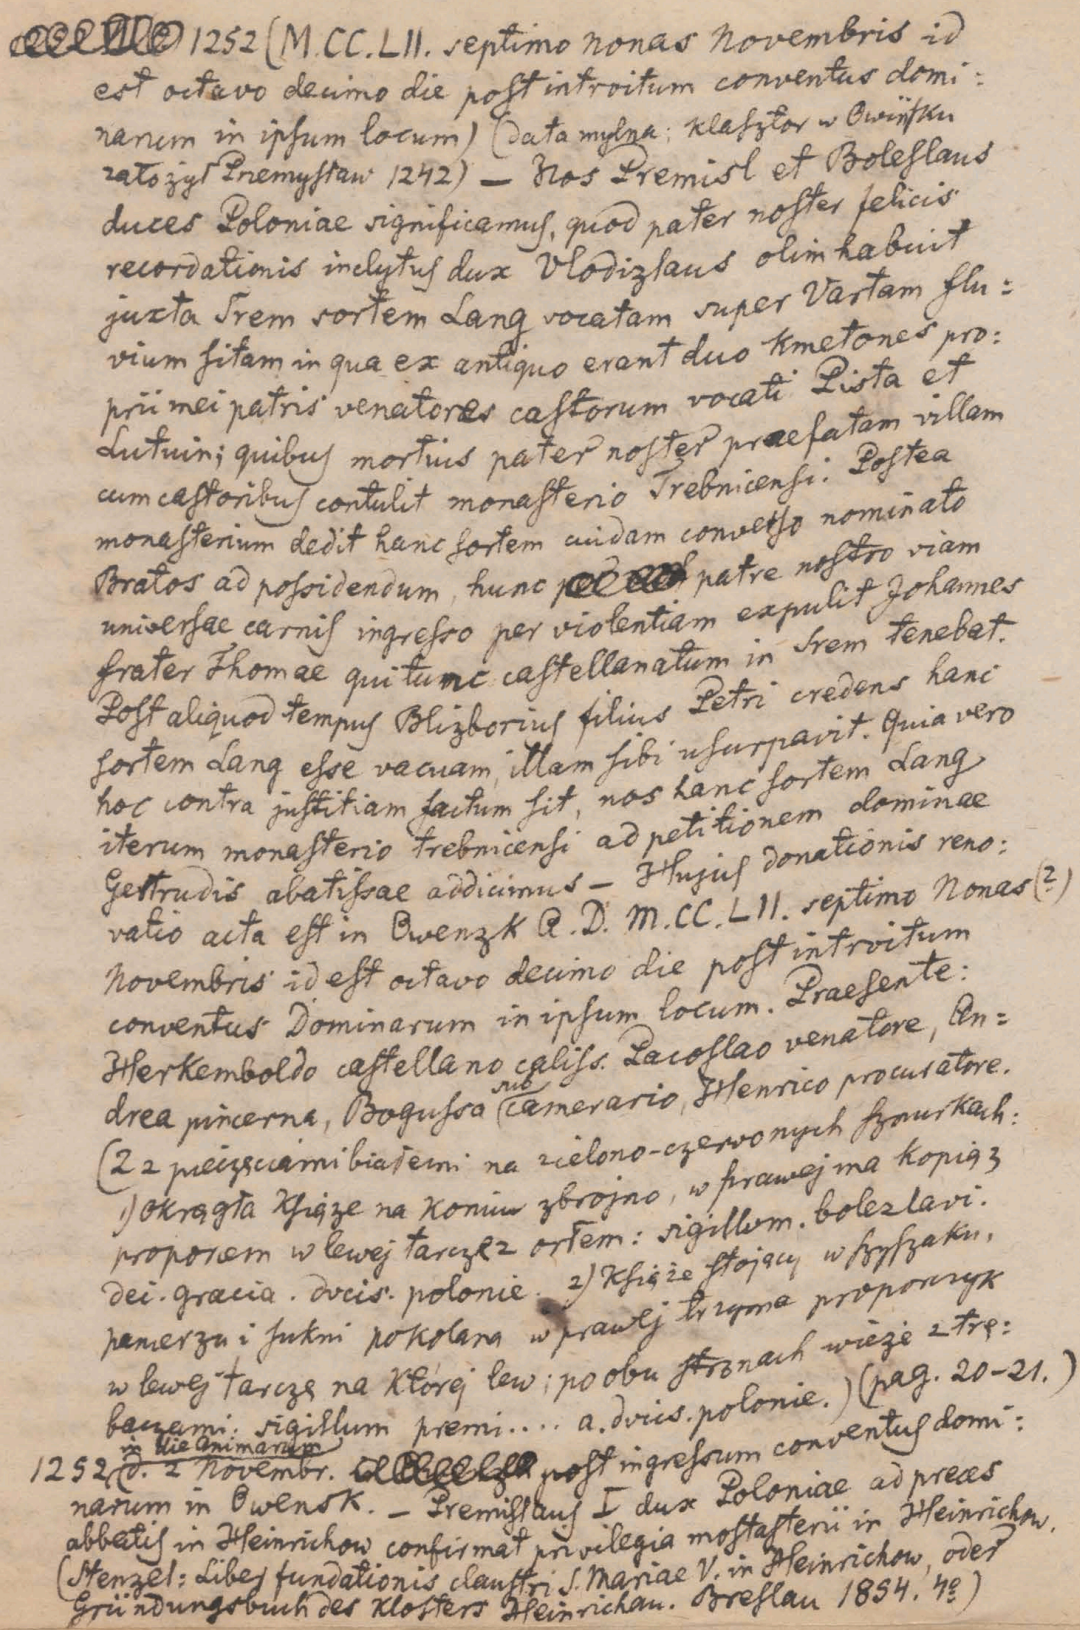 1252 (M.CC.LII. septimo Nonas Novembris id
est octavo decimo die post introitum conventus domi=
narum in ipsum locum) (data mylna: klasztor w Owińsku
założył Przemysław 1242) — Nos Premisl et Boleslaus
duces Poloniae significamus, quod pater noster felicis
recordationis inclytus dux Vlodizlaus olim habuit
juxta Srem sortem Lang vocatam super Vartam flu=
vium sitam in qua ex antiquo erant duo Kmetones pro:
prii mei patris venatores castorum vocati Pista et
Lutuin; quibus mortuis pater noster praefatam villam
cum castoribus contulit monasterio Trebnicensi. Postea
monasterium dedit hanc sortem cuidam converso nominato
Bratos ad possidendum, hunc patre nostro viam
universae carnis ingresso per violentiam expulit Johannes
frater Thomae qui tunc castellanatum in Srem tenebat.
Post aliquod tempus Blizborius filius Petri credens hanc
sortem Lang esse vacuam, illam sibi usurpavit. Quia vero
hoc contra justitiam factum sit, nos hanc sortem Lang
iterum monasterio trebnicensi ad petitionem dominae
Gertrudis abatissae addicimus — Hujus donationis reno:
vatio acta est in Owenzk A.D. M.CC.LII. septimo Nonas (?)
Novembris id est octavo decimo die post introitum
conventus Dominarum in ipsum locum. Praesente:
Herkemboldo castellano caliss. Pacoslao venatore, An=
drea pincerna, Bogussa sub camerario, Henrico procuratore.
(Z 2 pieczęciami białemi na zielono-czerwonych sznurkach:
1) okrągła Książe na koniu zbrojno, w prawej ma kopią z
proporcem w lewej tarczę z orłem: sigillvm. bolezlavi.
dei. gracia. dvcis. polonie. 2) Książe stojący w szyszaku,
pancerzu i sukni po kolana w prawej trzyma proporczyk
w lewej tarczę na której lew; po obu stronach wieże z trę:
baczami: sigillum premi.... a. dvcis. polonie.) (pag. 20-21.)
in die animarum
1252 (d. 2 Novembr. post ingressum conventus domi:
narum in Owensk. — Premislaus I dux Poloniae ad preces
abbatis in Heinrichow confirmat privilegia mostasterii in Heinrichow.
(Stenzel: Liber fundationis claustri S. Mariae V. in Heinrichow, oder
Gründungsbuch des Klosters Heinrichau. Breslau 1854. 4o)